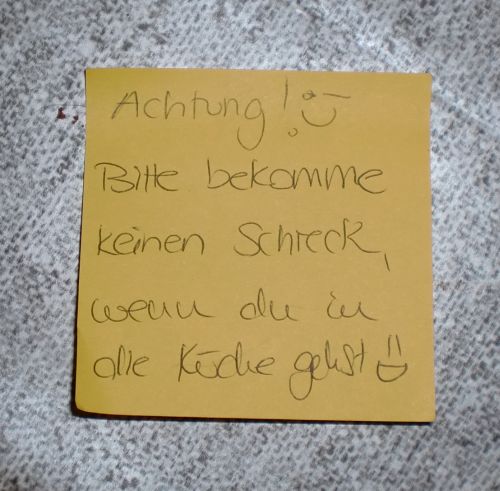 Achtung! ;-)
Bitte bekomme
keinen Schreck,
wenn du in
die Küche gehst :D